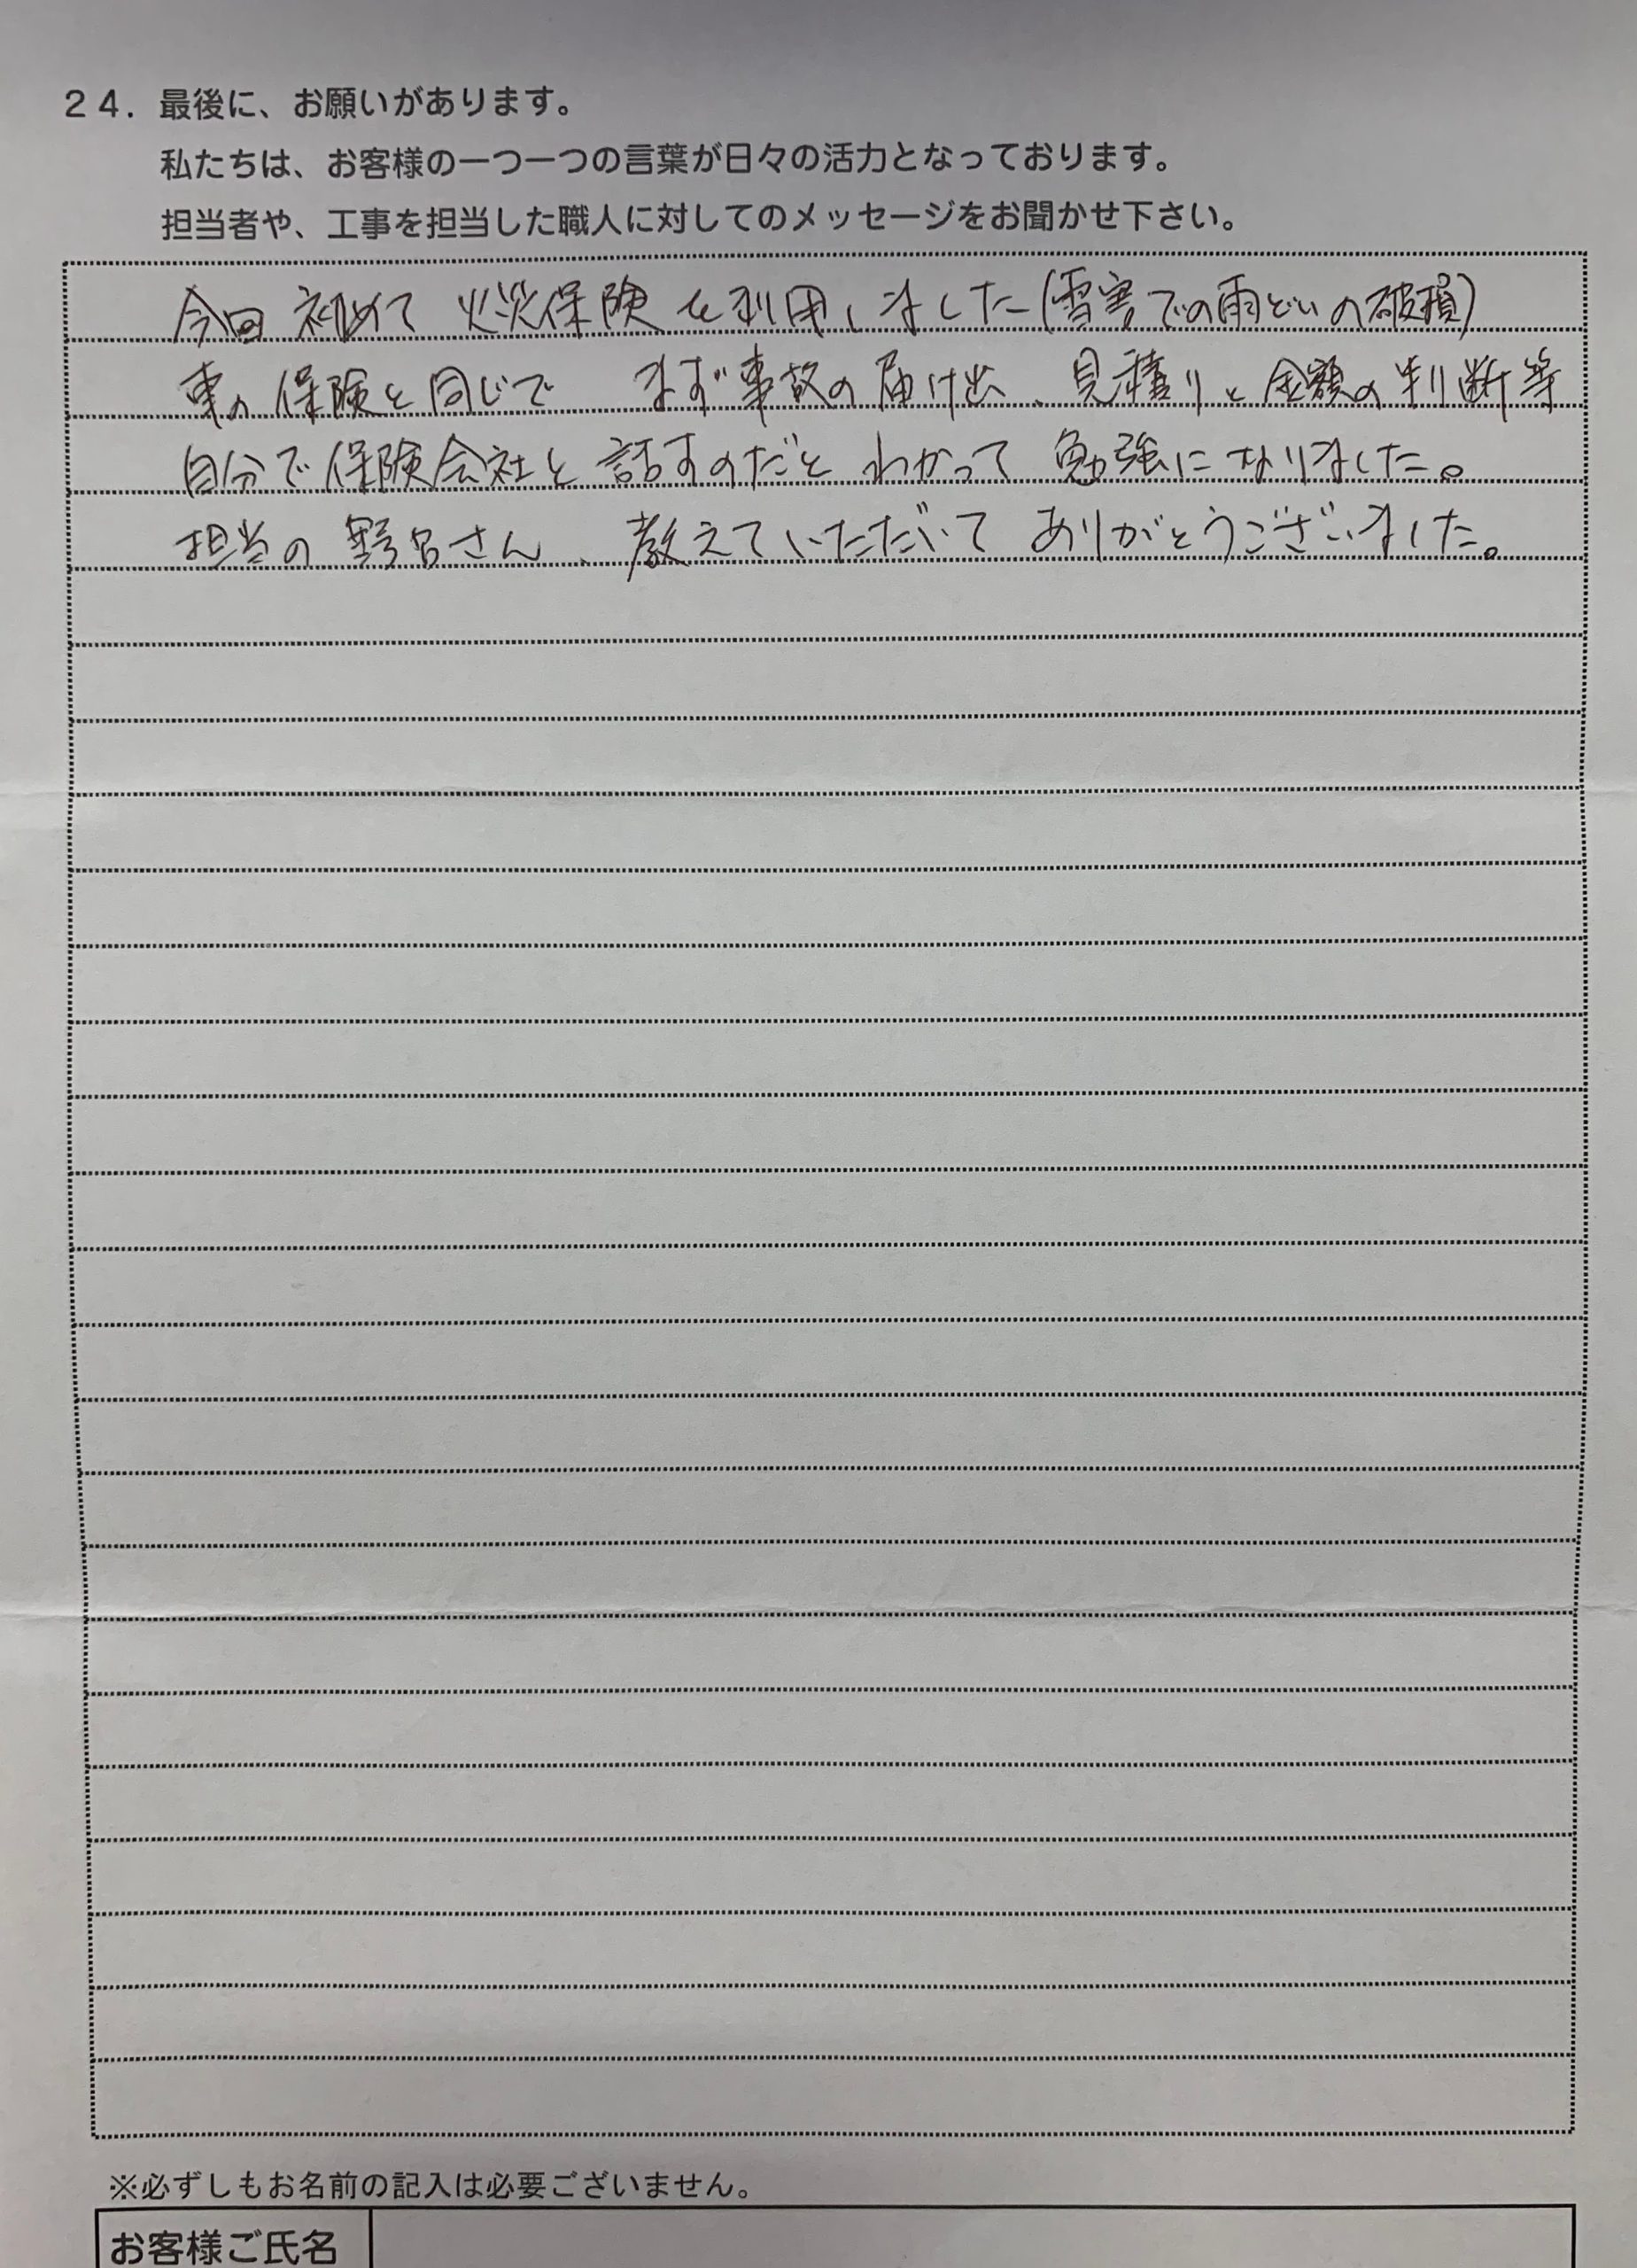 ２４．最後に、お願いがあります。
私たちは、お客様の一つ一つの言葉が日々の活力となっております。
担当者や、工事を担当した職人に対してのメッセージをお聞かせ下さい。
今回 初めて 火災保険を利用しました(雪害での雨どいの破損)
車の保険と同じで まず事故の届け出、見積りと金額の判断等
自分で保険会社と話すのだと わかって 勉強になりました。
担当の野呂さん、教えていただいて ありがとうございました。
※必ずしもお名前の記入は必要ございません。
お客様ご氏名